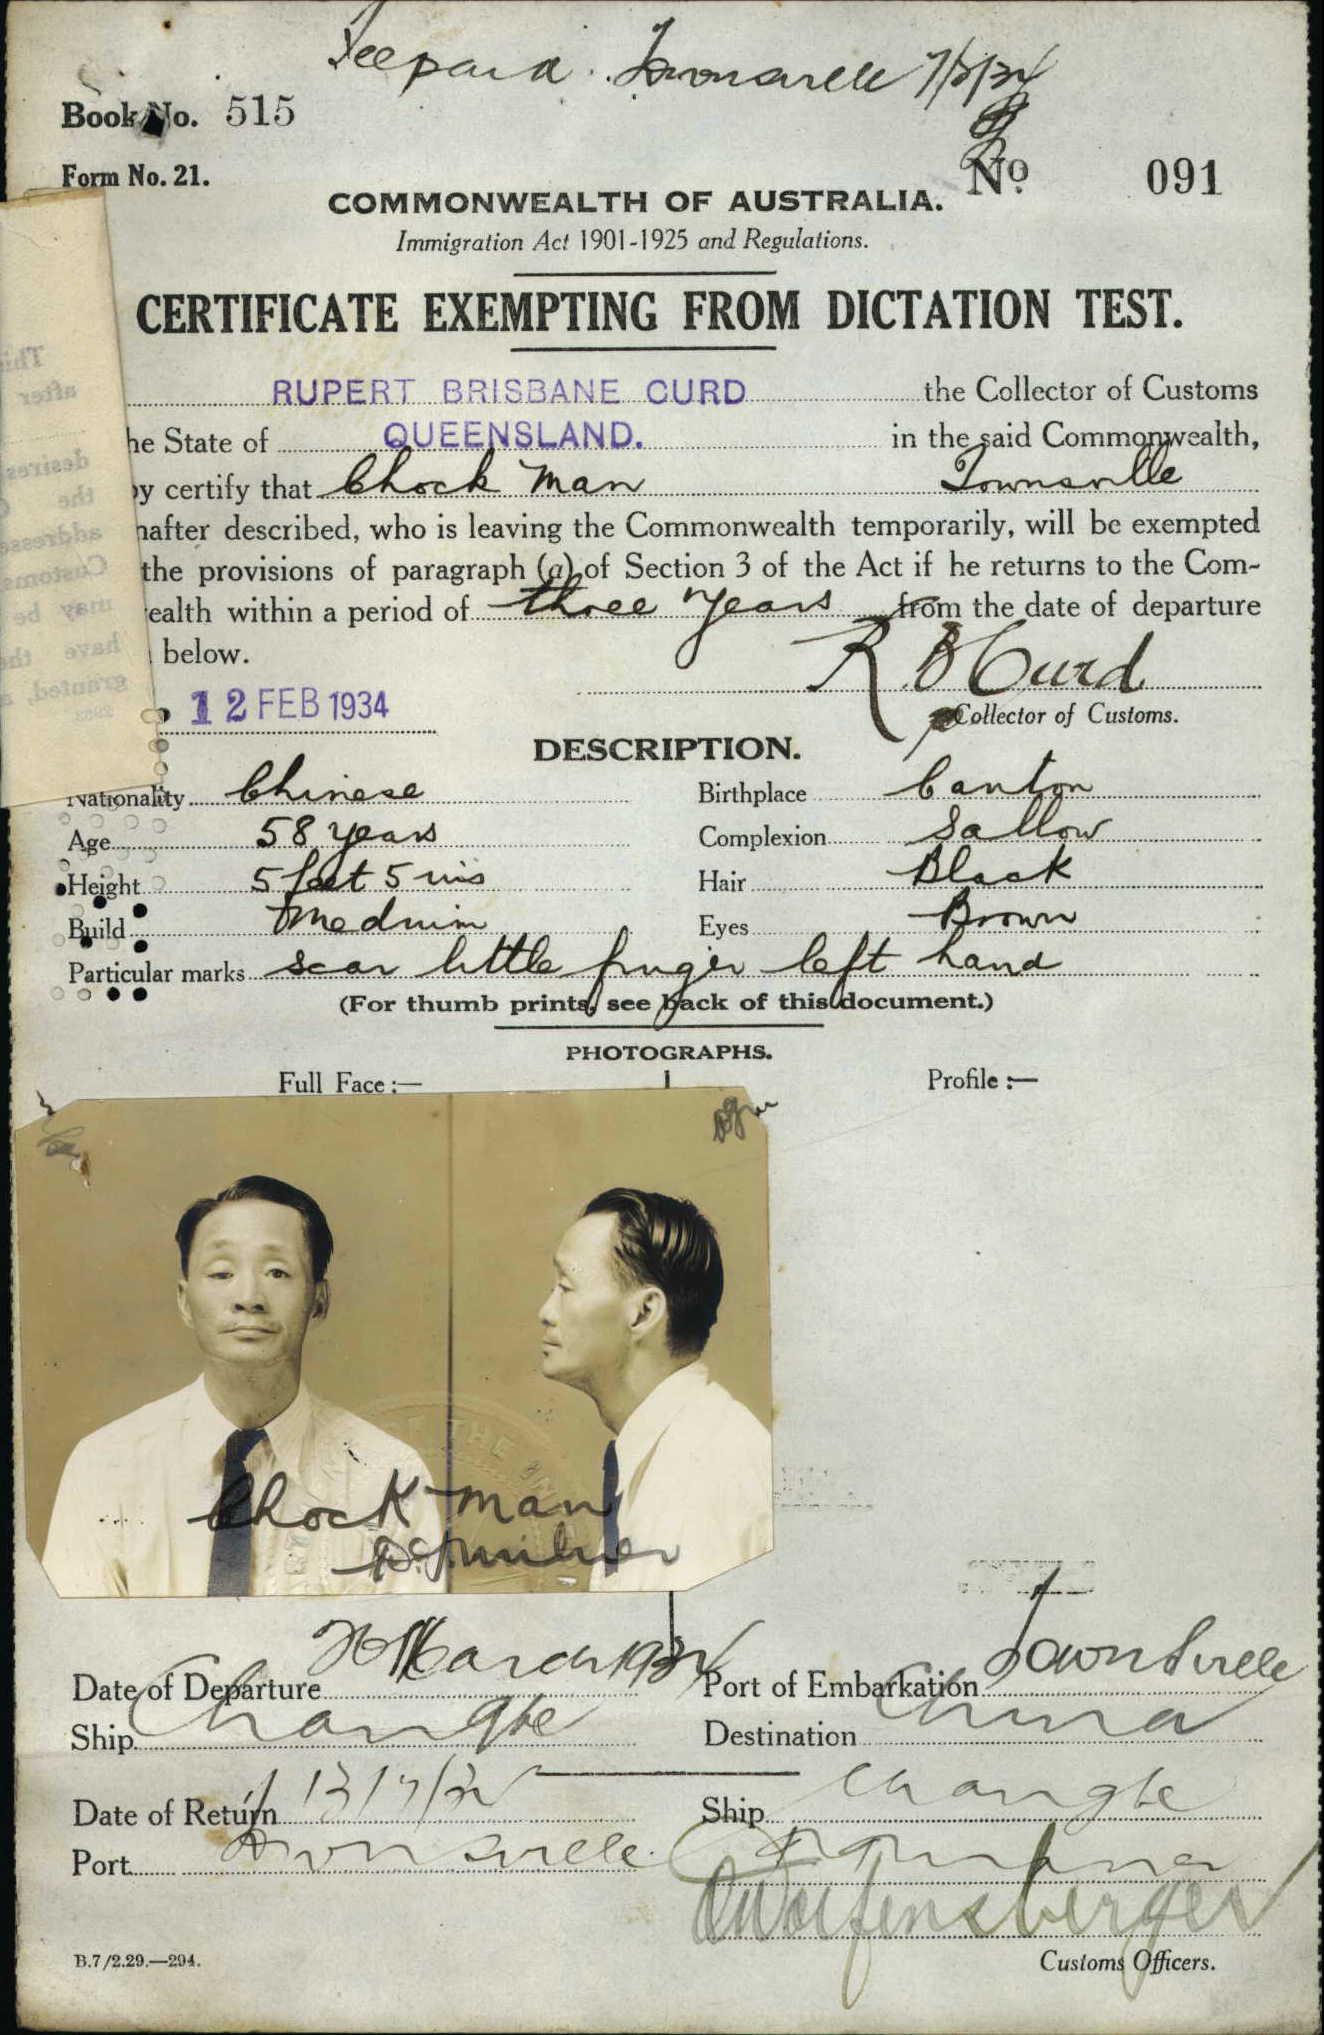 Fee paid. Townsville 7/2/34
Book No. 515
Form No. 21.
No 091
COMMONWEALTH OF AUSTRALIA.
Immigration Act 1901-1925 and Regulations.
CERTIFICATE EXEMPTING FROM DICTATION TEST.
RUPERT BRISBANE CURD the Collector of Customs
he State of QUEENSLAND. in the said Commonwealth,
by certify that Chock Man Townsville
nafter described, who is leaving the Commonwealth temporarily, will be exempted
the provisions of paragraph (a) of Section 3 of the Act if he returns to the Com-
ealth within a period of three years from the date of departure
below.
R B Curd
12 FEB 1934
Collector of Customs.
DESCRIPTION.
Nationality Chinese Birthplace Canton
Age 58 years Complexion Sallow
Height 5 feet 5 ins Hair Black
Build Medium Eyes Brown
Particular marks scar little finger left hand
(For thumb prints, see back of this document.)
PHOTOGRAPHS.
Full Face :— Profile :—
Chock Man
Date of Departure 26 March 1934 Port of Embarkation Townsville
Ship Changte Destination China
Date of Return Ship Changte
Port Townsville
B.7/2.29.—294.
Customs Officers.